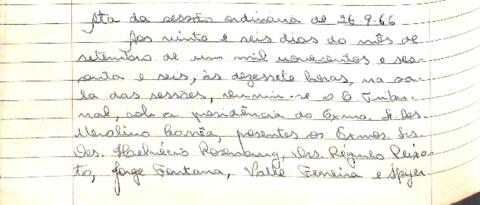 Ata da sessão ordinária de 26-9-66
Aos vinte e seis dias do mês de
setembro de um mil novecentos e ses-
senta e seis, às dezessete horas, na sa-
la das sessões, reuniu-se o E. Tribu-
nal, sob a presidência do Exmo. Sr. Des.
Merolino Corrêa, presentes os Exmos. Srs.
Des. Helvécio Rosenburg, Drs. Régulo Peixo-
to, Jorge Fontana, Valle Ferreira e Spyer